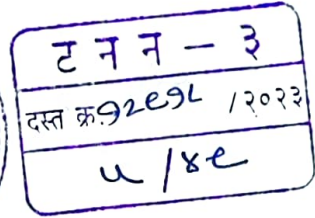 ट न न - ३
दस्त क्र.१२९१८ /२०२३
५ /४९